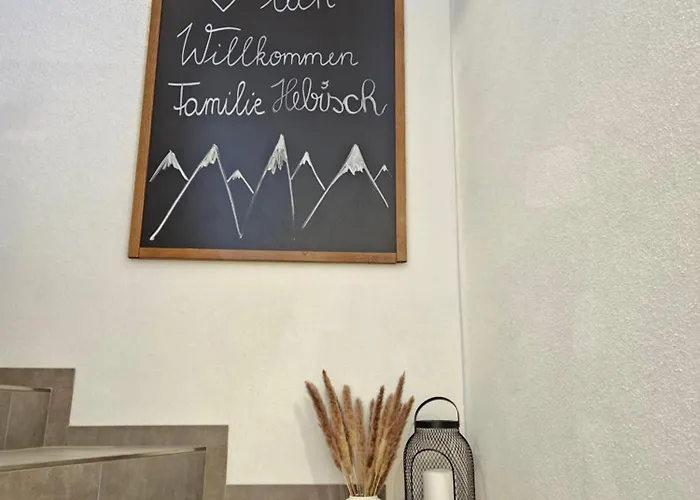 lich
Willkommen
Familie Hebisch